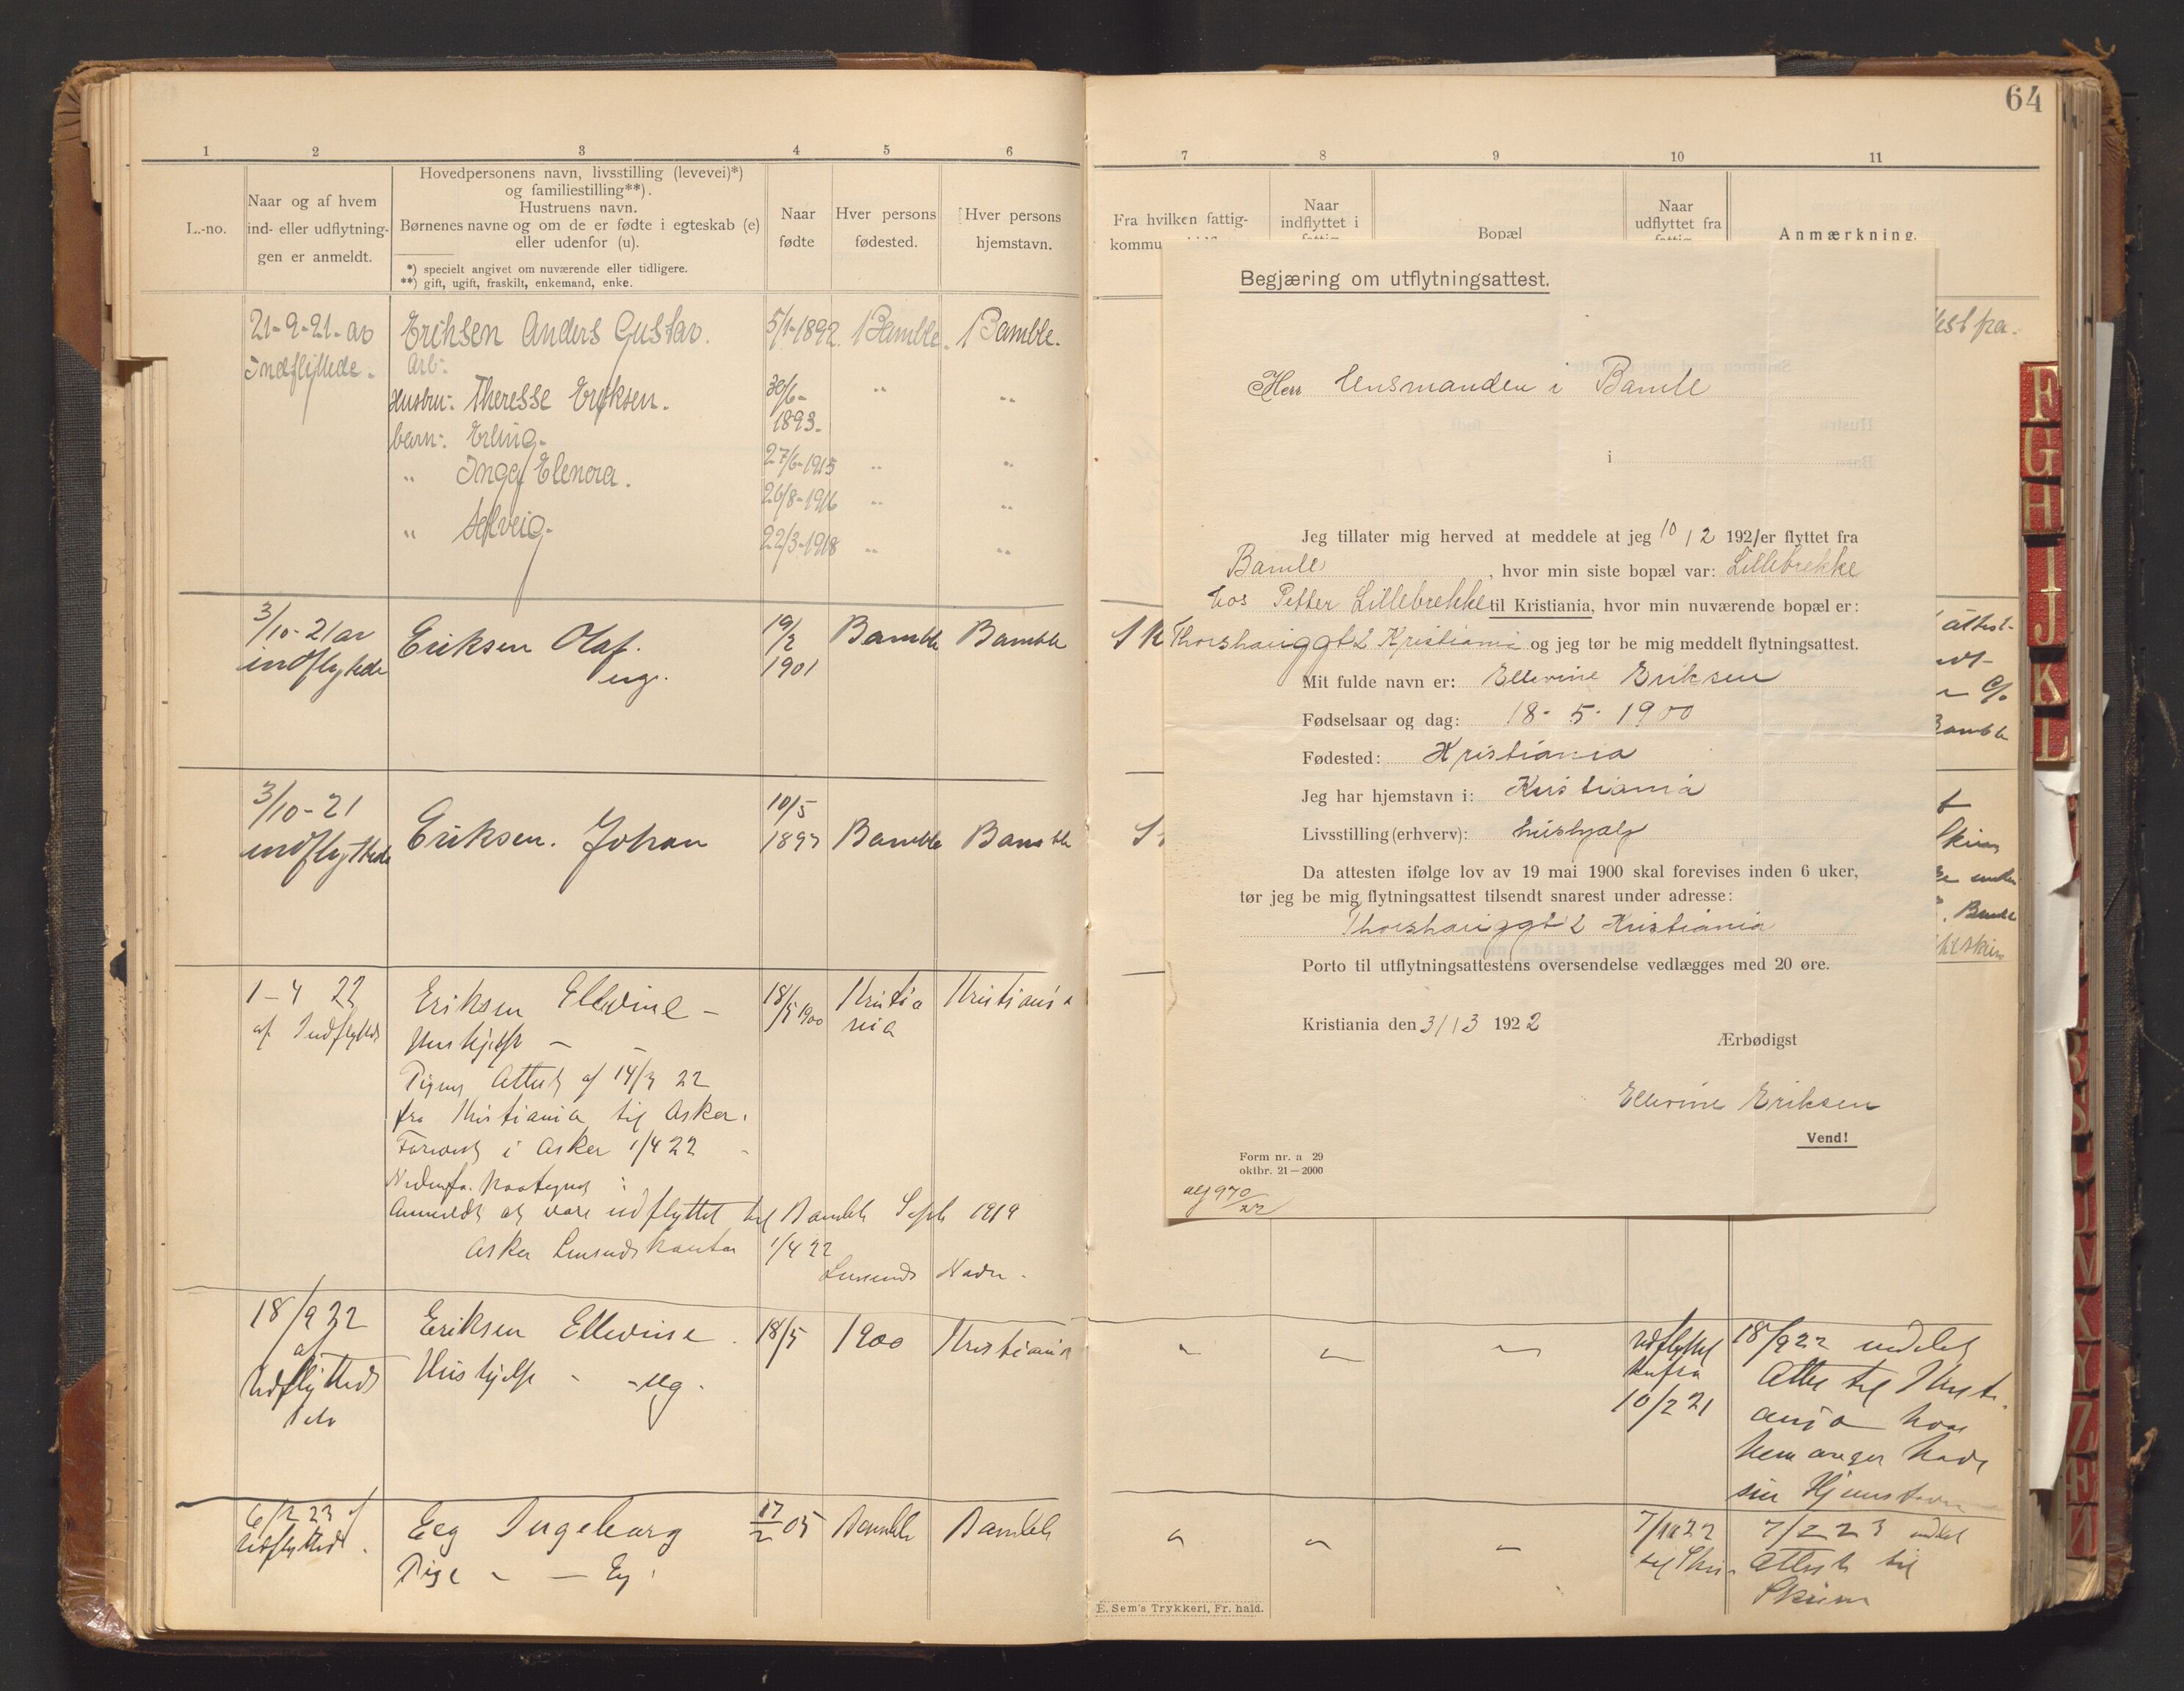 64
1 2 3 4 5 6
L.-no.
Naar og af hvem
ind- eller udflytning-
gen er anmeldt.
Hovedpersonens navn, livsstilling (levevei)*)
og familiestilling**).
Hustruens navn.
Børnenes navne og om de er fødte i egteskab (e)
eller udenfor (u).
*) specielt angivet om nuværende eller tidligere.
**) gift, ugift, fraskilt, enkemand, enke.
Naar
fødte
Hver persons
fødested.
Hver persons
hjemstavn.
21-9-21-av Eriksen Anders Gustav. 5/1-1892. Bamble. Bamble.
Indflyttede. Arb.
Hustru: Theresse Eriksen. 30/6- 1893. " "
barn: Erling. 27/6-1915 " "
" Inga Elenora. 26/8-1916 " "
" Solveig. 22/3-1918 " "
3/10-21 av Eriksen Olaf. 19/2 1901 Bamble Bamble
indflyttede ug.
3/10-21 Eriksen. Johan 10/5 1897 Bamble Bamble
indflyttede
1-4 22 Eriksen Ellevine - 18/5 1900 Kristiania Kristiania
af Indflytted Huskjelp -
Pigens Attest af 14/3 22
fra Kristiania til Asker.
Forevist i Asker 1/4 22
Anmeldt at være udflyttet til Bamble Septb 1919
Asker Lensmdskontor 1/4 22
Lensmds Navn.
18/9 22 Eriksen Ellevine. 18/5 1900 Kristiania
af Huskjelp - ug.
Udflytteds
6/2 23 af Eeg Ingeborg 17/2 05 Bamble Bamble
Udflytted. Pige
7 8 9 10 11
Fra hvilken fattig-
Naar
indflyttet i
Bopæl
Naar
udflyttet fra
Anmærkning.
Begjæring om utflytningsattest.
Herr Lensmanden i Bamle
i
Jeg tillater mig herved at meddele at jeg 10/2 1921 er flyttet fra
Bamle, hvor min siste bopæl var: Lillebrekke
hos Petter Lillebrekke til Kristiania, hvor min nuværende bopæl er:
Thorshauggt 2 Kristiania og jeg tør be mig meddelt flytningsattest.
Mit fulde navn er: Ellevine Eriksen
Fødselsaar og dag: 18-5-1900
Fødested: Kristiania
Jeg har hjemstavn i: Kristiania
Livsstilling (erhverv): hushjælp
Da attesten ifølge lov av 19 mai 1900 skal forevises inden 6 uker,
tør jeg be mig flytningsattest tilsendt snarest under adresse:
Thorshauggt 2 Kristiania
Porto til utflytningsattestens oversendelse vedlægges med 20 øre.
Kristiania den 31/3 1922
Ærbødigst
Ellevine Eriksen
Vend!
Form nr. a 29
oktbr. 21—2000
alf 970/22
Udflyttet herfra 10/2 21
18/9 22 meddelt
Attest til Kristi-
ania hvor
hun angir have
sin Hjemstavn
7/10 22 til Skien
7/2 23 meddelt
Attest til
Skien
E. Sem's Trykkeri, Fr. hald.
F
G
H
I
J
K
L